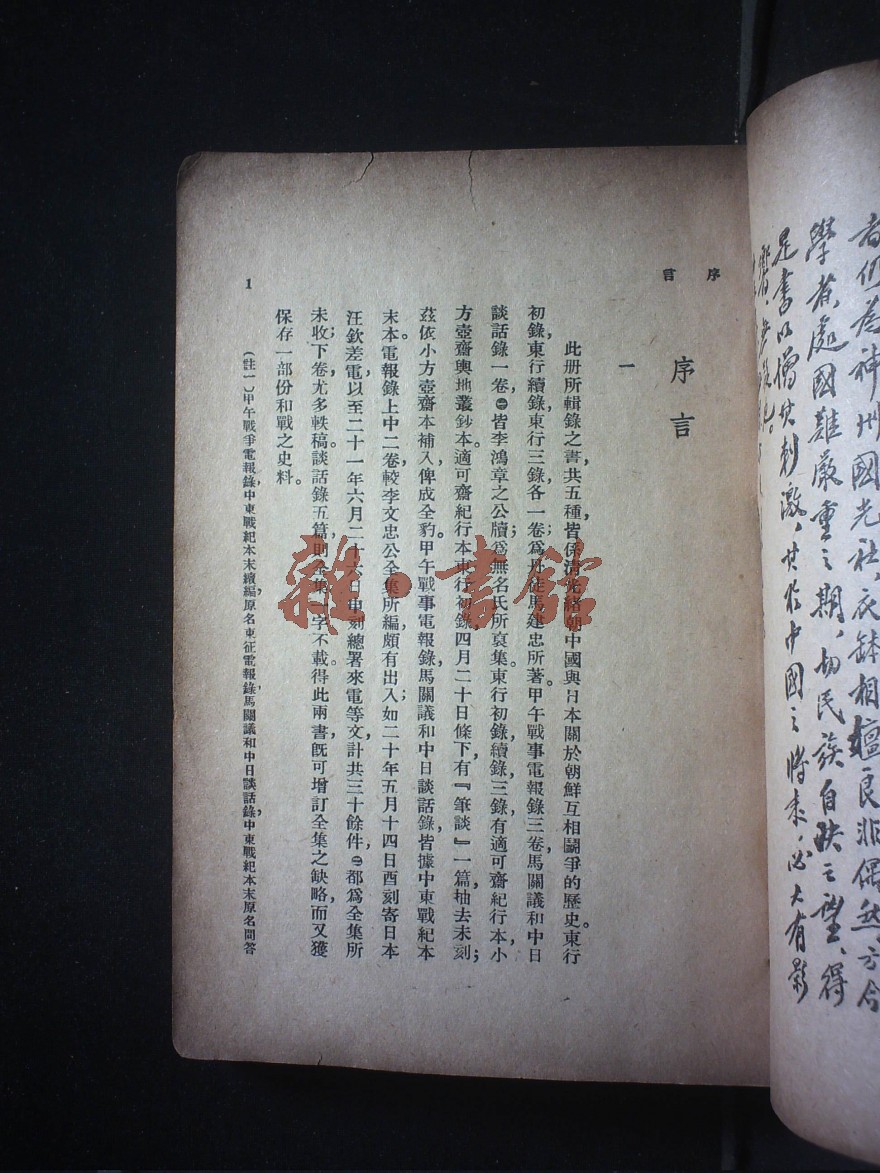 者們爲神州國光社、衣鉢相嬗良非偶然、方今
學者處國難嚴重之期，切民族自決之望、得
是書以增其刺激，其於中國之將來，必大有影
序言
序言
一
此册所輯錄之書共五種，皆係清光緒朝中國與日本關於朝鮮互相鬭爭的歷史。東行
初錄，東行續錄，東行三錄，各一卷，爲丹徒馬建忠所著。甲午戰事電報錄三卷，馬關議和中日
談話錄一卷，㊀皆李鴻章之公牘，爲無名氏所裒集。東行初錄，續錄，三錄，有適可齋紀行本，小
方壺齋輿地叢鈔本。適可齋紀行本東行初錄四月二十日條下有『筆談』一篇，柚去未刻；
茲依小方壺齋本補入，俾成全豹。甲午戰事電報錄，馬關議和中日談話錄，皆據中東戰紀本
末本。電報錄上中二卷，較李文忠公全集所編，頗有出入；如二十年五月十四日酉刻寄日本
汪欽差電，以至二十一年六月二十六日申刻總署來電等文，計共三十餘件，㊁都爲全集所
未收；下卷尤多軼稿。談話錄五篇，則全集一字不載。得此兩書，旣可增訂全集之缺略，而又獲
保存一部份和戰之史料。
（註一）甲午戰爭電報錄，中東戰紀本末續編原名東征電報錄，馬關議和中日談話錄，中東戰紀本末原名問答
1
雜·書館